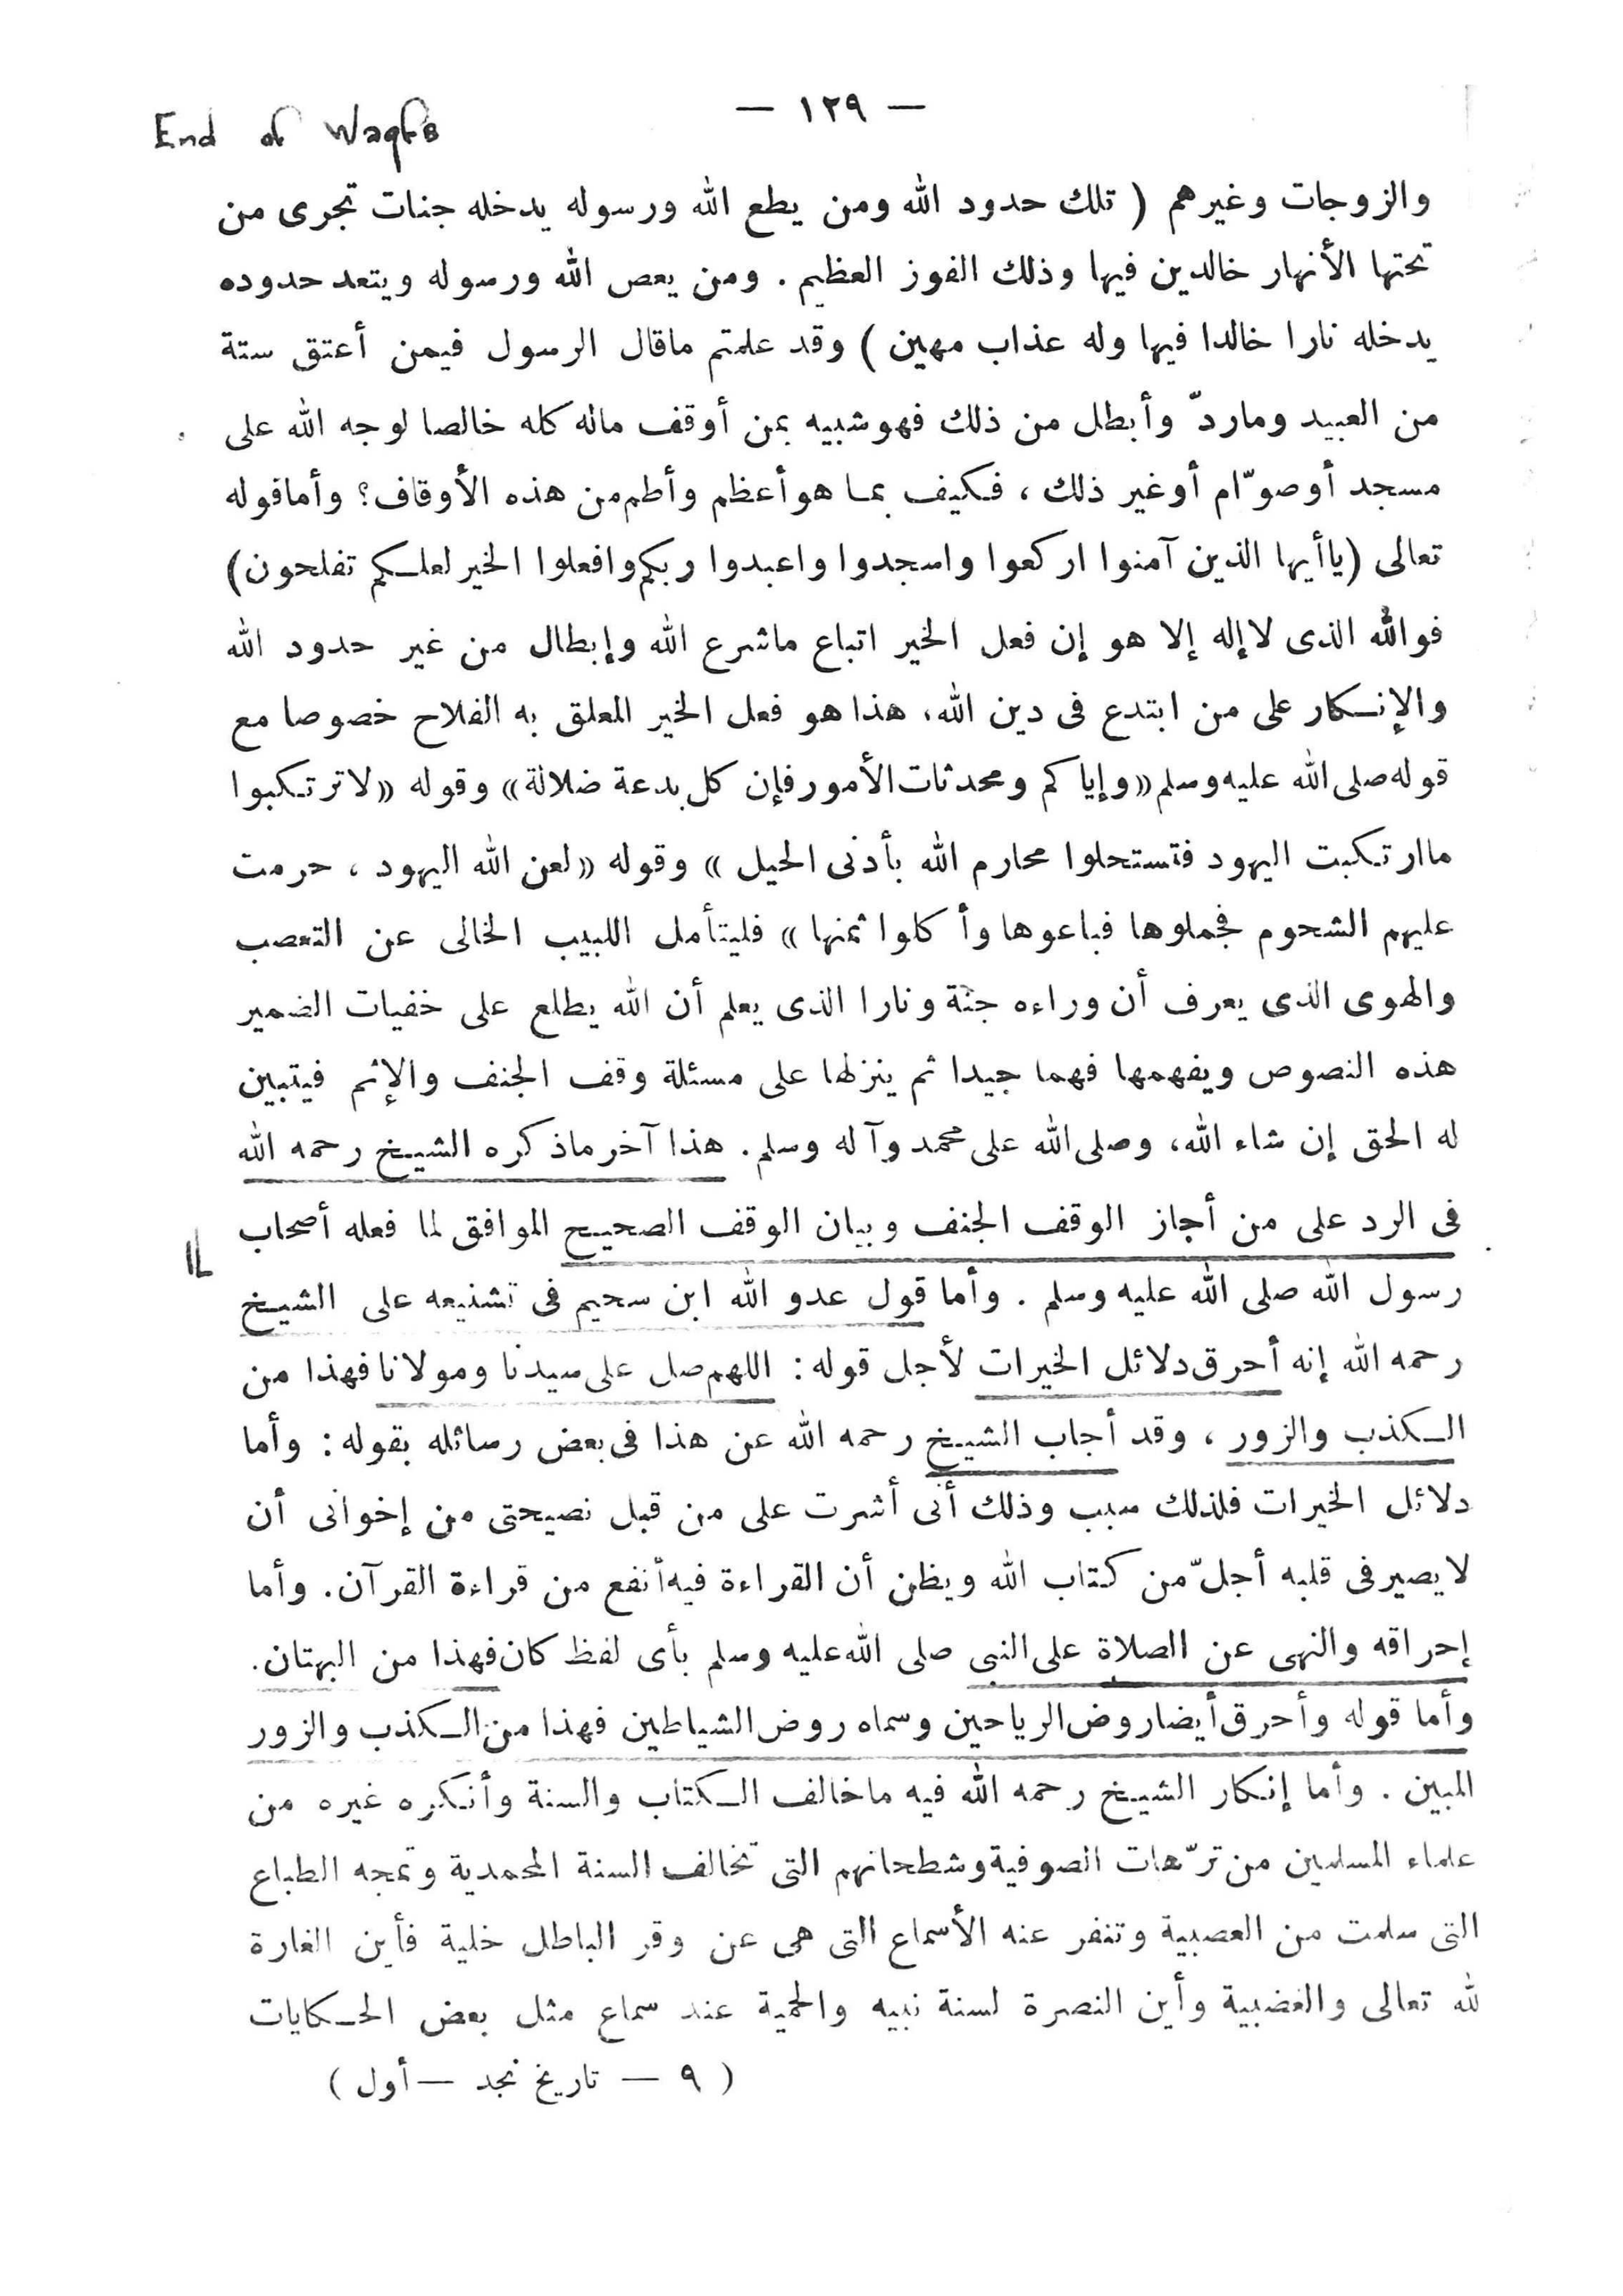 End of Waqfs
— ١٢٩ —
والزوجات وغيرهم ( تلك حدود الله ومن يطع الله ورسوله يدخله جنات تجرى من
تحتها الأنهار خالدين فيها وذلك الفوز العظيم . ومن يعص الله ورسوله ويتعد حدوده
يدخله نارا خالدا فيها وله عذاب مهين ) وقد علمتم ماقال الرسول فيمن أعتق ستة
من العبيد وماردّ وأبطل من ذلك فهو شبيه بمن أوقف ماله كله خالصا لوجه الله على
مسجد أو صوّام أو غير ذلك ، فكيف بما هو أعظم وأطم من هذه الأوقاف؟ وأما قوله
تعالى (ياأيها الذين آمنوا اركعوا واسجدوا واعبدوا ربكم وافعلوا الخير لعلكم تفلحون)
فوالله الذى لاإله إلا هو إن فعل الخير اتباع ماشرع الله وإبطال من غير حدود الله
والإنكار على من ابتدع فى دين الله، هذا هو فعل الخير المعلق به الفلاح خصوصا مع
قوله صلى الله عليه وسلم «وإياكم ومحدثات الأمور فإن كل بدعة ضلالة» وقوله «لاترتكبوا
ماارتكبت اليهود فتستحلوا محارم الله بأدنى الحيل » وقوله «لعن الله اليهود ، حرمت
عليهم الشحوم فجملوها فباعوها وأكلوا ثمنها » فليتأمل اللبيب الخالى عن التعصب
والهوى الذى يعرف أن وراءه جنة ونارا الذى يعلم أن الله يطلع على خفيات الضمير
هذه النصوص ويفهمها فهما جيدا ثم ينزلها على مسئلة وقف الجنف والإثم فيتبين
له الحق إن شاء الله، وصلى الله على محمد وآله وسلم. هذا آخر ماذكره الشيخ رحمه الله
فى الرد على من أجاز الوقف الجنف وبيان الوقف الصحيح الموافق لما فعله أصحاب
رسول الله صلى الله عليه وسلم . وأما قول عدو الله ابن سحيم فى تشنيعه على الشيخ
رحمه الله إنه أحرق دلائل الخيرات لأجل قوله : اللهم صل على سيدنا ومولانا فهذا من
الكذب والزور ، وقد أجاب الشيخ رحمه الله عن هذا فى بعض رسائله بقوله : وأما
دلائل الخيرات فلذلك سبب وذلك أنى أشرت على من قبل نصيحتى من إخوانى أن
لا يصير فى قلبه أجلّ من كتاب الله ويظن أن القراءة فيه أنفع من قراءة القرآن. وأما
إحراقه والنهى عن الصلاة على النبى صلى الله عليه وسلم بأى لفظ كان فهذا من البهتان.
وأما قوله وأحرق أيضا روض الرياحين وسماه روض الشياطين فهذا من الكذب والزور
المبين . وأما إنكار الشيخ رحمه الله فيه ماخالف الكتاب والسنة وأنكره غيره من
علماء المسلمين من ترّهات الصوفية وشطحاتهم التى تخالف السنة المحمدية وتمجه الطباع
التى سلمت من العصبية وتنفر عنه الأسماع التى هى عن وقر الباطل خلية فأين الغارة
لله تعالى والغضبية وأين النصرة لسنة نبيه والحمية عند سماع مثل بعض الحكايات
( ٩ — تاريخ نجد — أول )